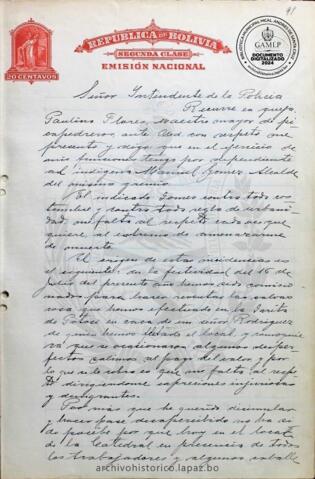 41
REPUBLICA DE BOLIVIA
SEGUNDA CLASE
EMISIÓN NACIONAL
20 CENTAVOS
GAMLP
DOCUMENTO
DIGITALIZADO
2024
Señor Intendente de la Policia
Recurre en queja.
Paulino Flores, maestro mayor de
empedreros, ante Ud. con respeto me
presento y digo: que en el ejercicio de
mis funciones tengo por dependiente
al indigena Manuel Gomez Alcalde
del mismo gremio.
El indicado Gomez contra toda cos
tumbre y contra toda regla de urbani
dad, me falta al respeto cada vez que
quiere, al extremo de amenazarme
de muerte.
El origen de estas incidencias es
el siguiente: en la festividad del 16 de
Julio del presente año hemos sido comisio
nados para hacer reventar las
que hemos efectuado en la Garita
de Potosí en casa de un señor Rodriguez
de quien hemos el local, y
se ocasionaron algunos desper
fectos salimos al pago del valor y por
lo que se le cobra es que me falta al respe
to dirigiendome expresiones injuriosas
y denigrantes.
Por más que he querido disimular
y hacer pasar desapercibido no ha si
do posible por que hoy en el local
de la Catedral en presencia de todos
los trabajadores y algunos caballe
archivohistorico.lapaz.bo